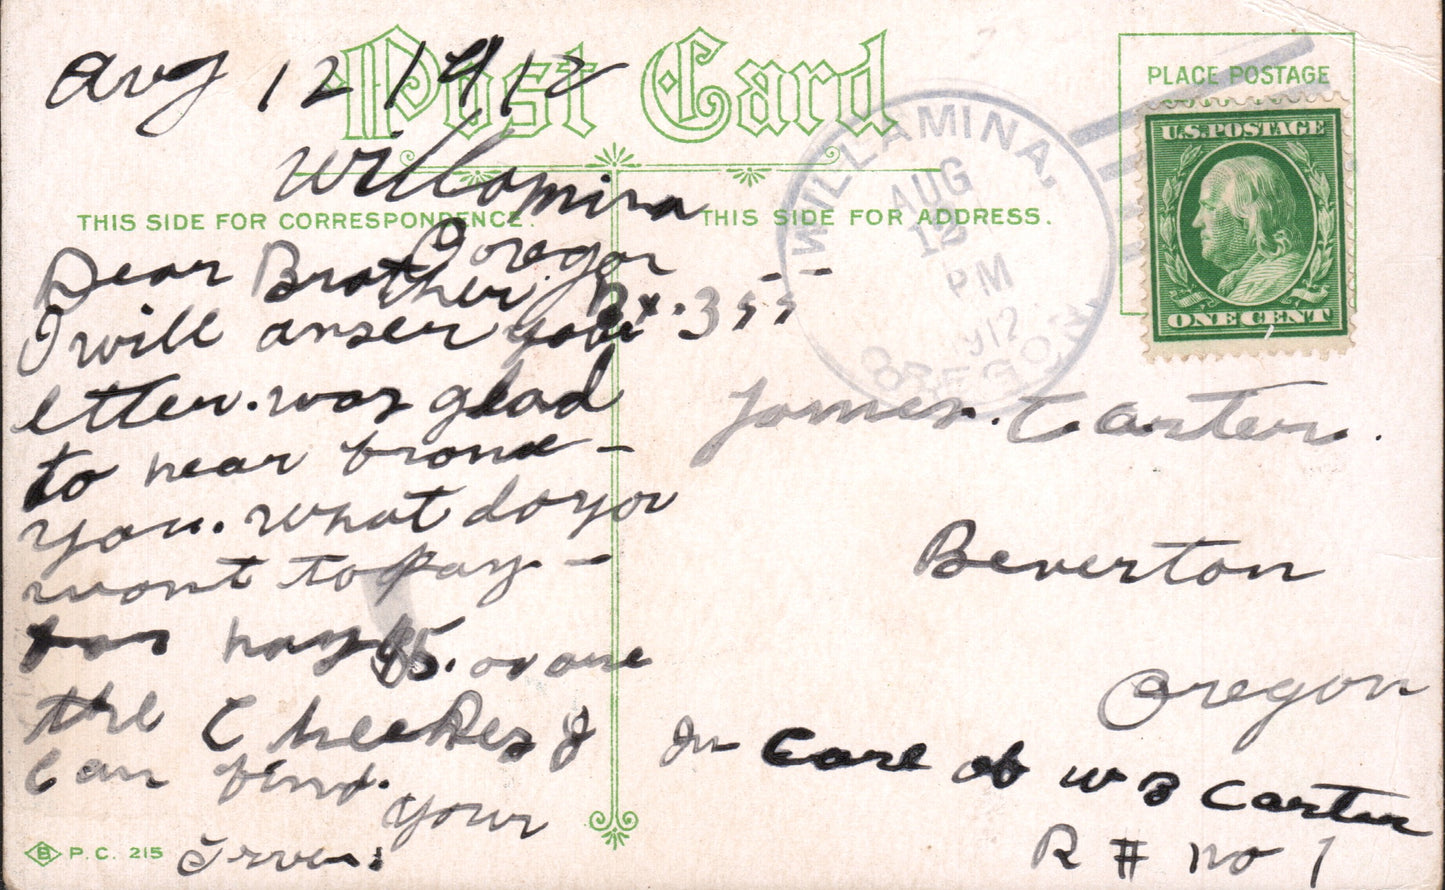 Post Card
Aug 12 1912
Willomina
Oregon
THIS SIDE FOR CORRESPONDENCE.
Dear Brother
Bx. 355
I will anser your
letter. was glad
to hear frome
you. what do you
wont to pay
for hay $5. or one
the Cheekes I
Can find.
Your
THIS SIDE FOR ADDRESS.
PLACE POSTAGE
U.S. POSTAGE
ONE CENT
WILLAMINA,
AUG
12
PM
1912
OREGON
James. Carter.
Beverton
Oregon
In Care of W B Carter
R # no 1
B P. C. 215